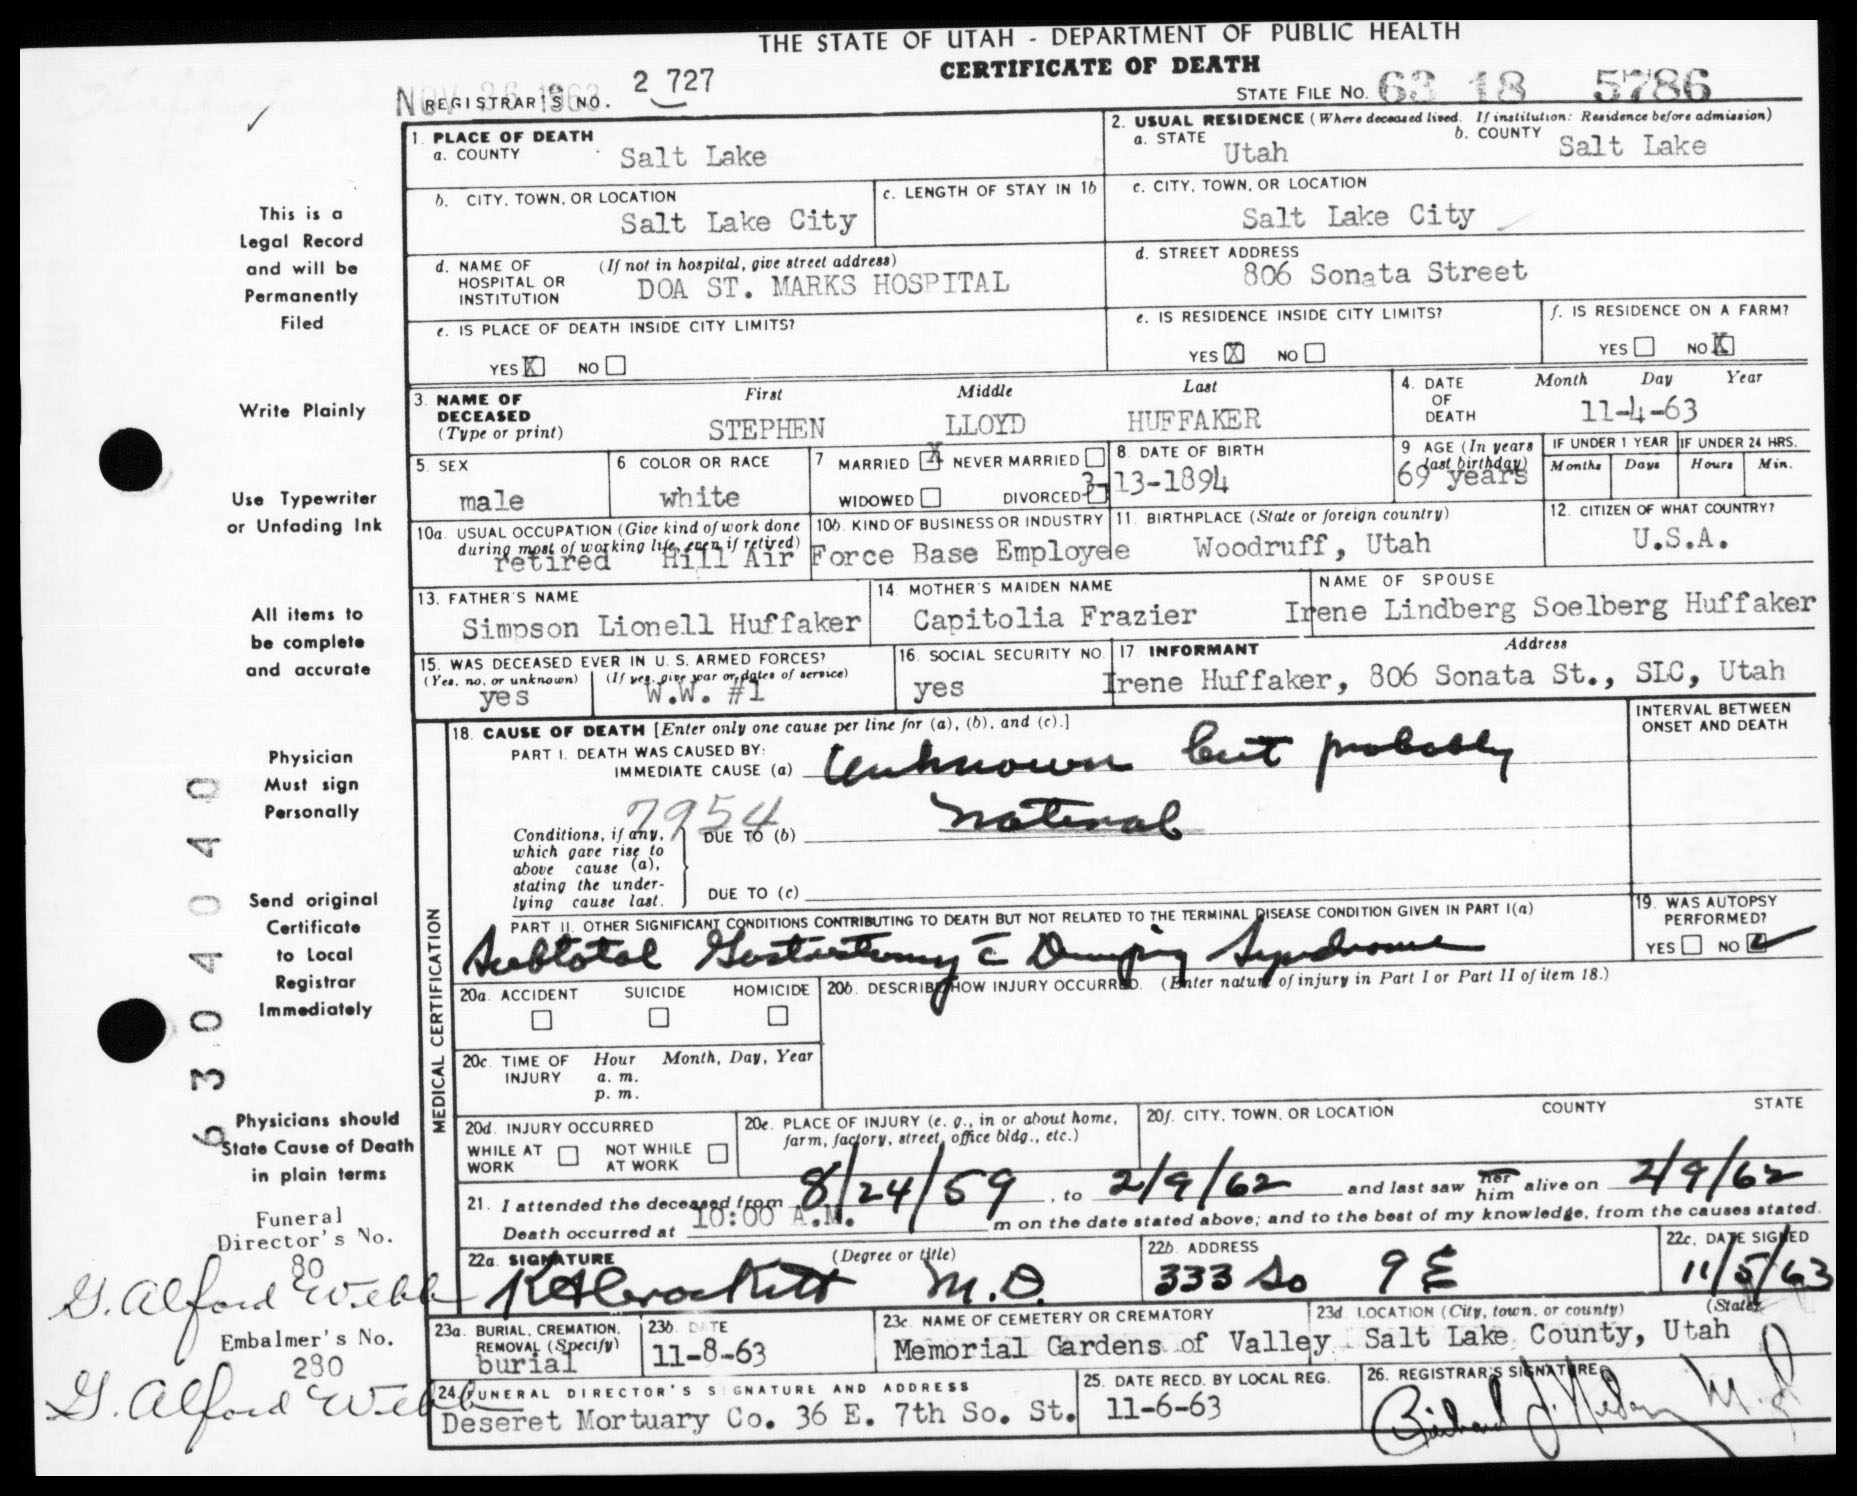 THE STATE OF UTAH - DEPARTMENT OF PUBLIC HEALTH
CERTIFICATE OF DEATH
NOV 26 1963
REGISTRAR'S NO. 2 727
STATE FILE NO. 63 18 5786
1. PLACE OF DEATH
a. COUNTY Salt Lake
2. USUAL RESIDENCE (Where deceased lived. If institution: Residence before admission)
a. STATE Utah b. COUNTY Salt Lake
b. CITY, TOWN, OR LOCATION Salt Lake City
c. LENGTH OF STAY IN 1b
c. CITY, TOWN, OR LOCATION Salt Lake City
d. NAME OF HOSPITAL OR INSTITUTION (If not in hospital, give street address)
DOA ST. MARKS HOSPITAL
d. STREET ADDRESS
806 Sonata Street
e. IS PLACE OF DEATH INSIDE CITY LIMITS?
YES X NO
e. IS RESIDENCE INSIDE CITY LIMITS?
YES X NO
f. IS RESIDENCE ON A FARM?
YES NO X
3. NAME OF DECEASED (Type or print)
First Middle Last
STEPHEN LLOYD HUFFAKER
4. DATE OF DEATH Month Day Year
11-4-63
5. SEX
male
6 COLOR OR RACE
white
7 MARRIED X NEVER MARRIED
WIDOWED DIVORCED
8. DATE OF BIRTH
3-13-1894
9 AGE (In years last birthday)
69 years
IF UNDER 1 YEAR
Months Days
IF UNDER 24 HRS.
Hours Min.
10a. USUAL OCCUPATION (Give kind of work done during most of working life, even if retired)
10b. KIND OF BUSINESS OR INDUSTRY
retired Hill Air Force Base Employee
11. BIRTHPLACE (State or foreign country)
Woodruff, Utah
12. CITIZEN OF WHAT COUNTRY?
U.S.A.
13. FATHER'S NAME
Simpson Lionell Huffaker
14. MOTHER'S MAIDEN NAME
Capitolia Frazier
NAME OF SPOUSE
Irene Lindberg Soelberg Huffaker
15. WAS DECEASED EVER IN U.S. ARMED FORCES?
(Yes, no, or unknown) (If yes, give war or dates of service)
yes W.W. #1
16. SOCIAL SECURITY NO.
yes
17. INFORMANT Address
Irene Huffaker, 806 Sonata St., SLC, Utah
MEDICAL CERTIFICATION
18. CAUSE OF DEATH [Enter only one cause per line for (a), (b), and (c).]
INTERVAL BETWEEN ONSET AND DEATH
PART I. DEATH WAS CAUSED BY:
IMMEDIATE CAUSE (a) Unknown but probably
7954
Conditions, if any, which gave rise to above cause (a), stating the underlying cause last.
DUE TO (b) natural
DUE TO (c)
PART II. OTHER SIGNIFICANT CONDITIONS CONTRIBUTING TO DEATH BUT NOT RELATED TO THE TERMINAL DISEASE CONDITION GIVEN IN PART I(a)
Subtotal Gastrectomy c̄ Dumping Syndrome
19. WAS AUTOPSY PERFORMED?
YES NO ✓
20a. ACCIDENT SUICIDE HOMICIDE
20b. DESCRIBE HOW INJURY OCCURRED. (Enter nature of injury in Part I or Part II of item 18.)
20c. TIME OF INJURY Hour Month, Day, Year
a. m.
p. m.
20d. INJURY OCCURRED
WHILE AT WORK NOT WHILE AT WORK
20e. PLACE OF INJURY (e. g., in or about home, farm, factory, street, office bldg., etc.)
20f. CITY, TOWN, OR LOCATION COUNTY STATE
21. I attended the deceased from 8/24/59, to 2/9/62 and last saw her him alive on 2/9/62
Death occurred at 10:00 A.M. m on the date stated above; and to the best of my knowledge, from the causes stated.
22a. SIGNATURE (Degree or title)
K A Crockett M.D.
22b. ADDRESS
333 So 9 E
22c. DATE SIGNED
11/5/63
23a. BURIAL, CREMATION, REMOVAL (Specify)
burial
23b. DATE
11-8-63
23c. NAME OF CEMETERY OR CREMATORY
Memorial Gardens of Valley
23d. LOCATION (City, town, or county) (State)
Salt Lake County, Utah
24. FUNERAL DIRECTOR'S SIGNATURE AND ADDRESS
Deseret Mortuary Co. 36 E. 7th So. St.
25. DATE RECD. BY LOCAL REG.
11-6-63
26. REGISTRAR'S SIGNATURE
Richard
This is a
Legal Record
and will be
Permanently
Filed
Write Plainly
Use Typewriter
or Unfading Ink
All items to
be complete
and accurate
Physician
Must sign
Personally
Send original
Certificate
to Local
Registrar
Immediately
Physicians should
State Cause of Death
in plain terms
6304040
Funeral
Director's No.
80
G. Alford Webb
Embalmer's No.
280
G. Alford Webb